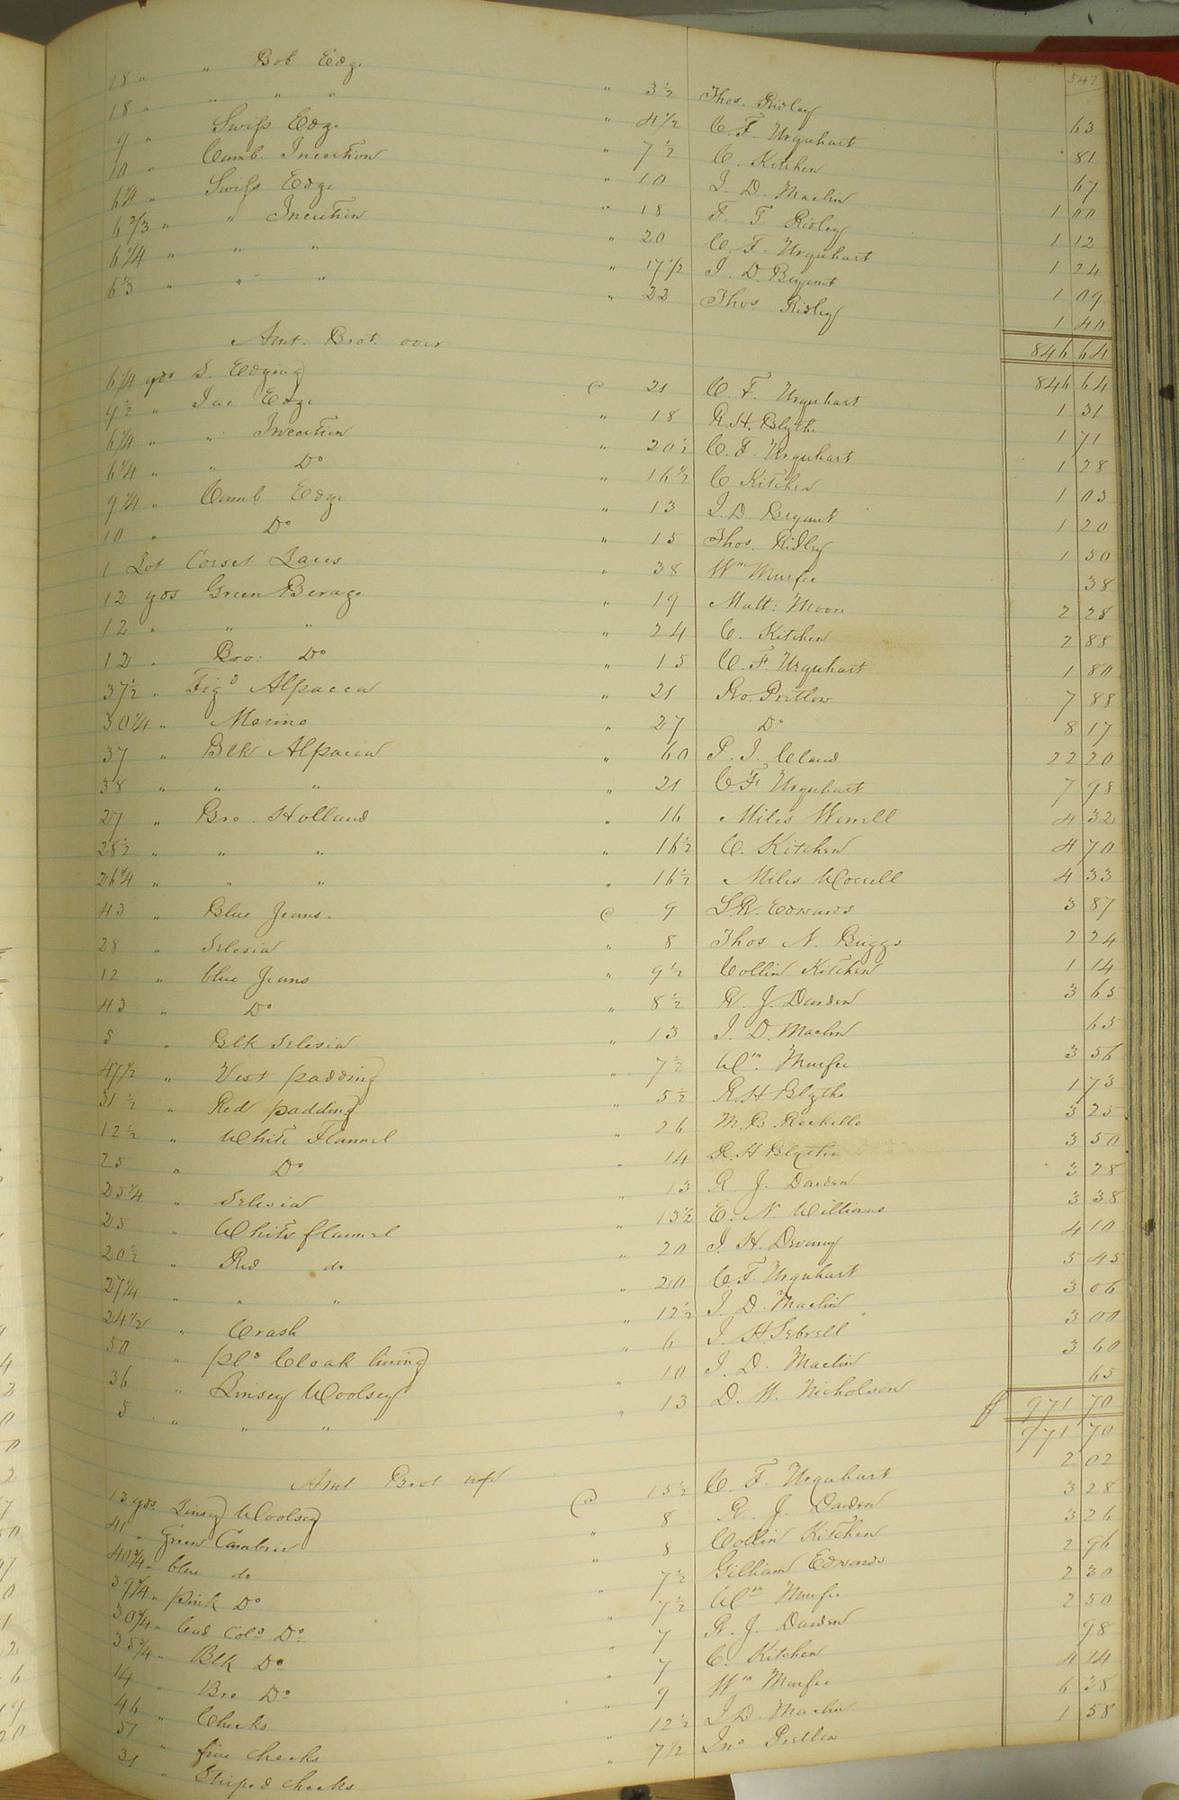 547
18 " " Bob Edg. " 3½ Thos. Ridley 63
18 " " " " " 4½ C. F. Urquhart 81
9 " Swiss Edg. " 7½ C. Kitchen 67
10 " Camb. Incertion " 10 J. D. Maclin 1 00
6¼ " Swiss Edg. " 18 F T Ridley 1 12
6⅔ " " Incertion " 20 C. F. Urquhart 1 24
6¼ " " " " 17½ J. D. Bryant 1 09
6⅓ " " " " 22 Thos Ridley 1 40
846 64
Amt. Brot. over 846 64
6¼ yds S. Edging @ 21 C. F. Urquhart 1 31
9½ " Jac Edge " 18 R. H. Blythe 1 71
6¼ " " Incertion " 20½ C. F. Urquhart 1 28
6¼ " " Do " 16½ C Kitchen 1 03
9¼ " Camb Edge " 13 J. D Bryant 1 20
10 " Do " 15 Thos. Ridley 1 50
1 Lot Corset Laces " 38 Wm Murfee 38
12 yds Green Berage " 19 Matt: Moore 2 28
12 " " " " 24 C. Kitchen 2 88
12 " Bro: Do " 15 C. F. Urquhart 1 80
37½ " Figd Alpacca " 21 Ro. Pretlow 7 88
30¼ " Merino " 27 Do 8 17
37 " Blk Alpacca " 60 P. J. Cland 22 20
38 " " " " 21 C. F Urquhart 7 98
27 " Bro. Holland " 16 Miles Worrell 4 32
28½ " " " " 16½ C. Kitchen 4 70
26¼ " " " " 16½ Miles Worrell 4 33
43 " Blue Jeans. @ 9 S. R. Edwards 3 87
28 " Silesia " 8 Thos N. Briggs 2 24
12 " blue Jeans " 9½ Collin Kitchen 1 14
43 " Do " 8½ R. J. Darden 3 65
5 " Blk Silesia " 13 J. D. Maclin 65
47½ " Vest padding " 7½ Wm. Murfee 3 56
31½ " Red padding " 5½ R H Blythe 1 73
12½ " White Flannel " 26 M. B. Rochelle 3 25
25 " Do " 14 R. H Blythe 3 50
25¼ " Silesia " 13 R. J. Darden 3 28
25 " White flannel " 13½ E. N Williams 3 38
20½ " Red do " 20 J. H. Drewry 4 10
27¼ " " " " 20 C. F Urquhart 5 45
24½ " Crash " 12½ J. D. Maclin 3 06
50 " pld Cloak lining " 6 J. H. Sebrell 3 00
36 " Linsey Woolsey " 10 J. D. Maclin 3 60
5 " " " " 13 D. W. Nicholson 65
971 70
Amt Brot up 971 70
13 yds Linsey Woolsey @ 15½ C. F. Urquhart 2 02
41 " Green Cambric " 8 R. J. Darden 3 28
40¾ " blue do " 8 Collin Kitchen 3 26
39¼ " pink Do " 7½ Gilliam Edwards 2 96
30¾ " lead Cold Do " 7½ Wm Murfee 2 30
35¾ " Blk Do " 7 R. J. Darden 2 50
14 " Bro Do " 7 C. Kitchen 98
46 " Checks " 9 Wm Murfee 4 14
51 " fine checks " 12½ J. D. Maclin 6 38
21 " Striped checks " 7½ Jno Pretlow 1 58